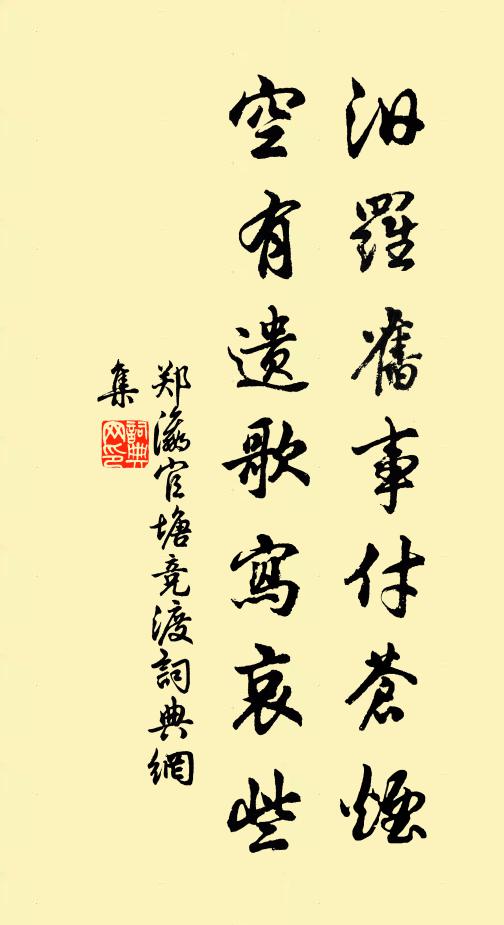 汨羅舊事付蒼煙
空有遺歌寫哀些
郑瀛官塘竞渡詞典網
集
詞典網印